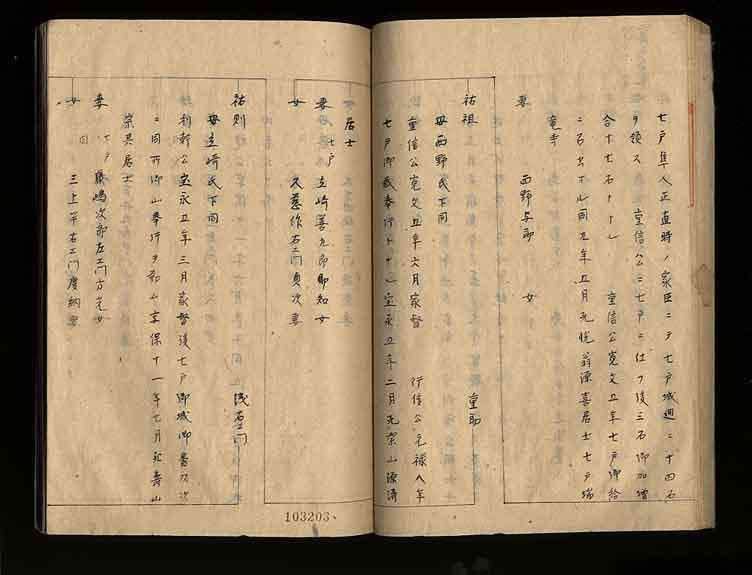 七戸隼人正直時ノ家臣ニテ七戸城廻ニ十四石
ヲ領ス 重信公ニ七戸ニ仕フ後三石御加増
合十七石トナル 重信公寛文五年七戸御給
ニ石出ル同九年五月死悦翁源喜居士七戸瑞
竜寺
妻 西野 女
祐祖 重助
母西野氏下同
重信公寛文五年六月家督 行信公元禄八年
七戸御蔵奉行トナル宝永五年二月死 山源清
居士
妻 七戸 立崎善九郎即知女
女 久慈作右エ門貞次妻
祐則 浅右エ門
母立崎氏下同
利幹公宝永五年三月家督後七戸御城御書次
ニ同所御山奉行ヲ勤ム享保十一年七月死寿山
宗具居士
妻 七戸 藤嶋次郎左エ門方光女
女 同 三上 右エ門 妻
103203